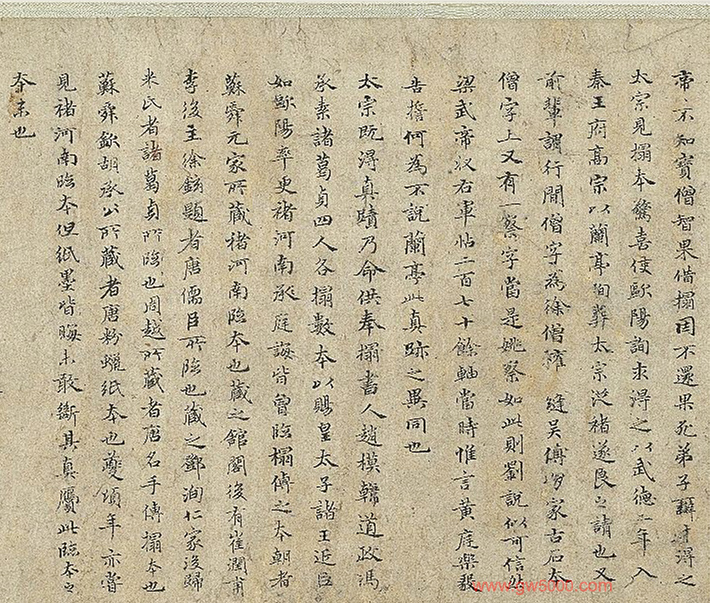 帝不知寶僧智果借搨因不還果死弟子辯才得之
太宗見搨本驚喜使歐陽詢求得之以武德二年入
秦王府高宗以蘭亭殉葬太宗從褚遂良之請也又
前輩謂行間僧字為徐僧權縫吳傅朋家古石本
僧字上又有一察字當是姚察如此則劉說似可信然
梁武帝收右軍帖二百七十餘軸當時惟言黃庭樂毅
告誓何為不說蘭亭此真跡之異同也
太宗既得真蹟乃命供奉搨書人趙模韓道政馮
承素諸葛貞四人各搨數本以賜皇太子諸王近臣
如歐陽率更褚河南永庭誨皆曾臨搨傳之本朝者
蘇舜元家所藏褚河南臨本也藏之館閣後有崔潤甫
李後主徐鉉題者唐儒臣所臨也藏之鄧洵仁家後歸
米氏者諸葛貞所臨也周越所藏者唐名手傳搨本也
蘇舜欽胡承公所藏者唐粉蠟紙本也夔頃年亦嘗
見褚河南臨本但紙墨皆晦未敢斷其真贗此臨本之
本末也
www.gw5000.com